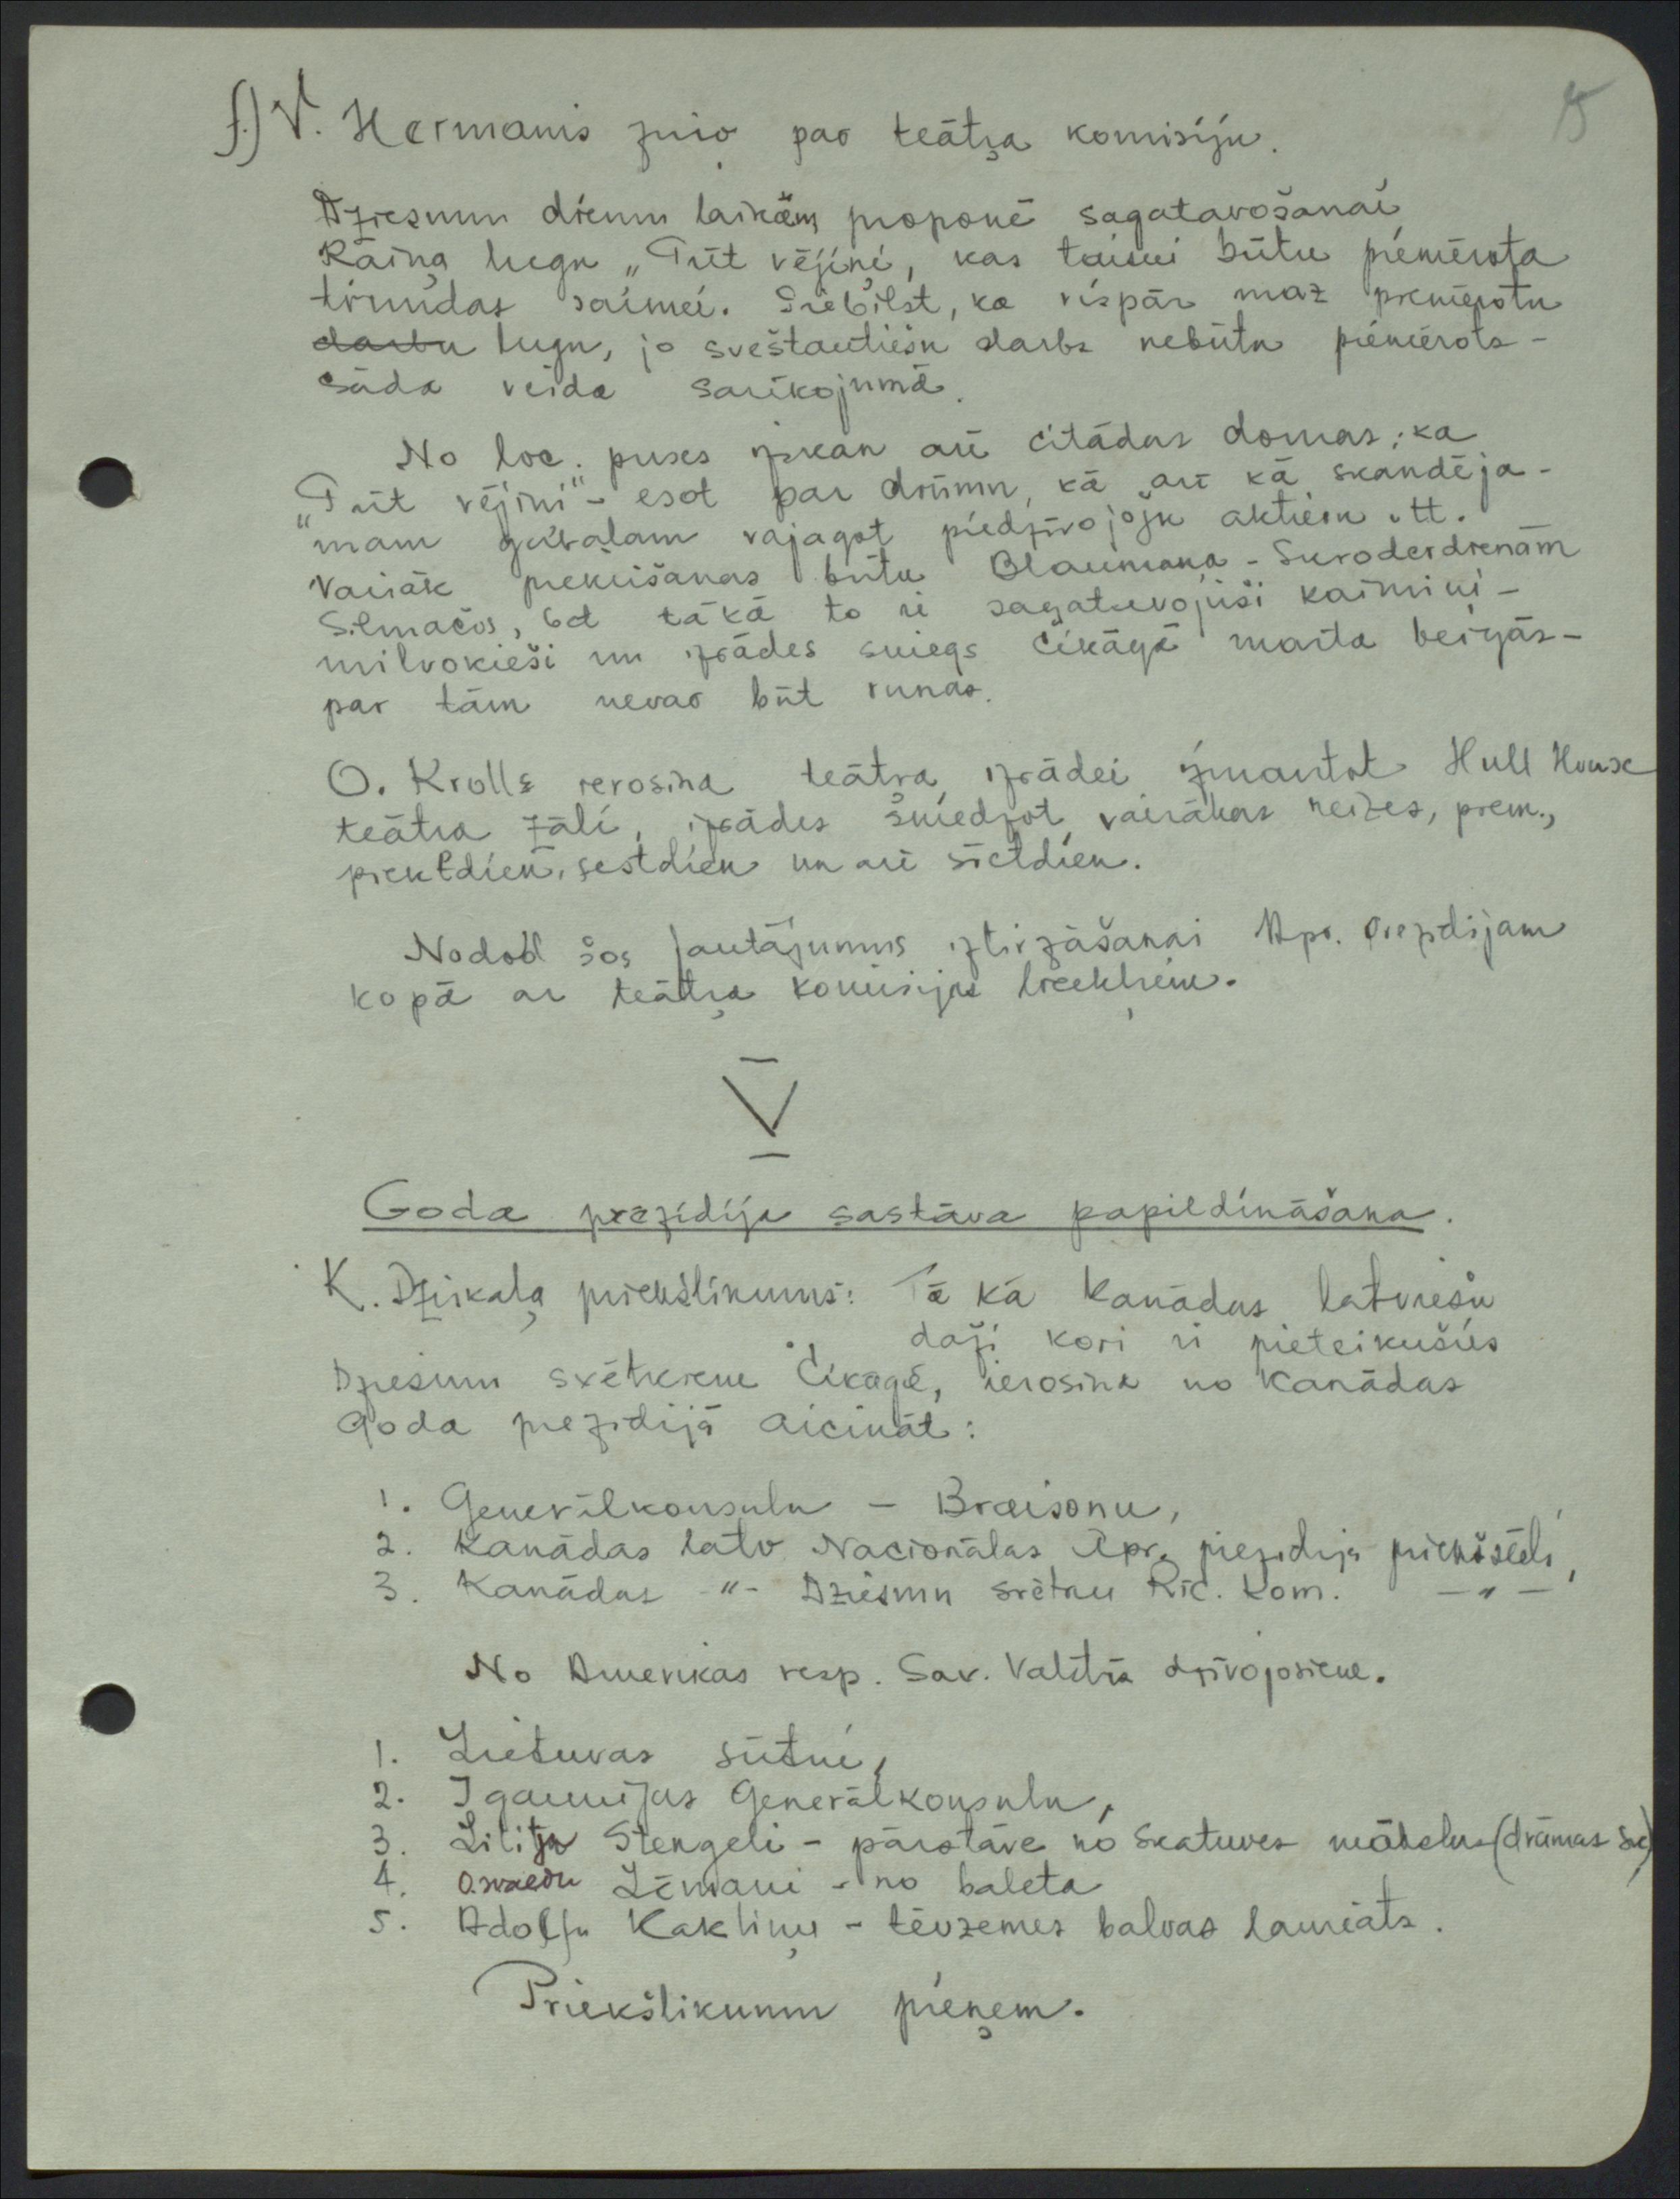 5
f.) V. Hermanis ziņo par teātŗa komisiju.
Dziesmu dienu laikam proponē sagatavošanai
Raiņa lugu „Pūt vējiņi, kas taisni būtu piemērota
trimdas saimei. Piebilst, ka vispār maz piemērotu
darbu lugu, jo sveštautiešu darbs nebūtu piemērots -
šāda veida sarīkojumā.
No loc. puses izskan arī citādas domas; ka
„Pūt vējiņi" - esot par drūmu, kā arī kā skandēja-
mam gabalam vajagot piedzīvojošu aktieru utt.
Vairāk piekrišanas būtu Blaumaņa - Skroderdienām
Silmačos, bet tā kā to ir sagatavojuši kaimiņi -
milvokieši un izrādes sniegs Čikāgā marta beigās -
par tām nevar būt runas.
O. Krolls ierosina teātŗa izrādei izmantot Hull House
teātra zāli, izrādes sniedzot vairākas reizes, piem.,
piektdien, sestdien un arī svētdien.
Nodod šos jautājumus iztirzāšanai Apv. prezidijam
kopā ar teātŗa komisijas locekļiem.
V
Goda prezidija sastāva papildināšana.
K. Dziŗkaļa priekšlikums: Tā kā Kanādas latviešu
daži kori ir pieteikušies
Dziesmu svētkiem Čikāgā, ierosina no Kanādas
Goda prezidijā aicināt:
1. Ģenerālkonsulu - Braisonu,
2. Kanādas latv. Nacionālas Apv. prezidija priekšsēdi,
3. Kanādas -"- Dziesmu svētku Rīc. kom. -"-
No Amerikas resp. Sav. Valstīs dzīvojošiem.
1. Lietuvas sūtni,
2. Igaunijas Ģenerālkonsulu,
3. Liliju Stengeli - pārstāve no skatuves mākslas (drāmas sk)
4. Osvaldu Lēmani - no baleta
5. Adolfu Kaktiņu - tēvzemes balvas laureāts.
Priekšlikumu pieņem.